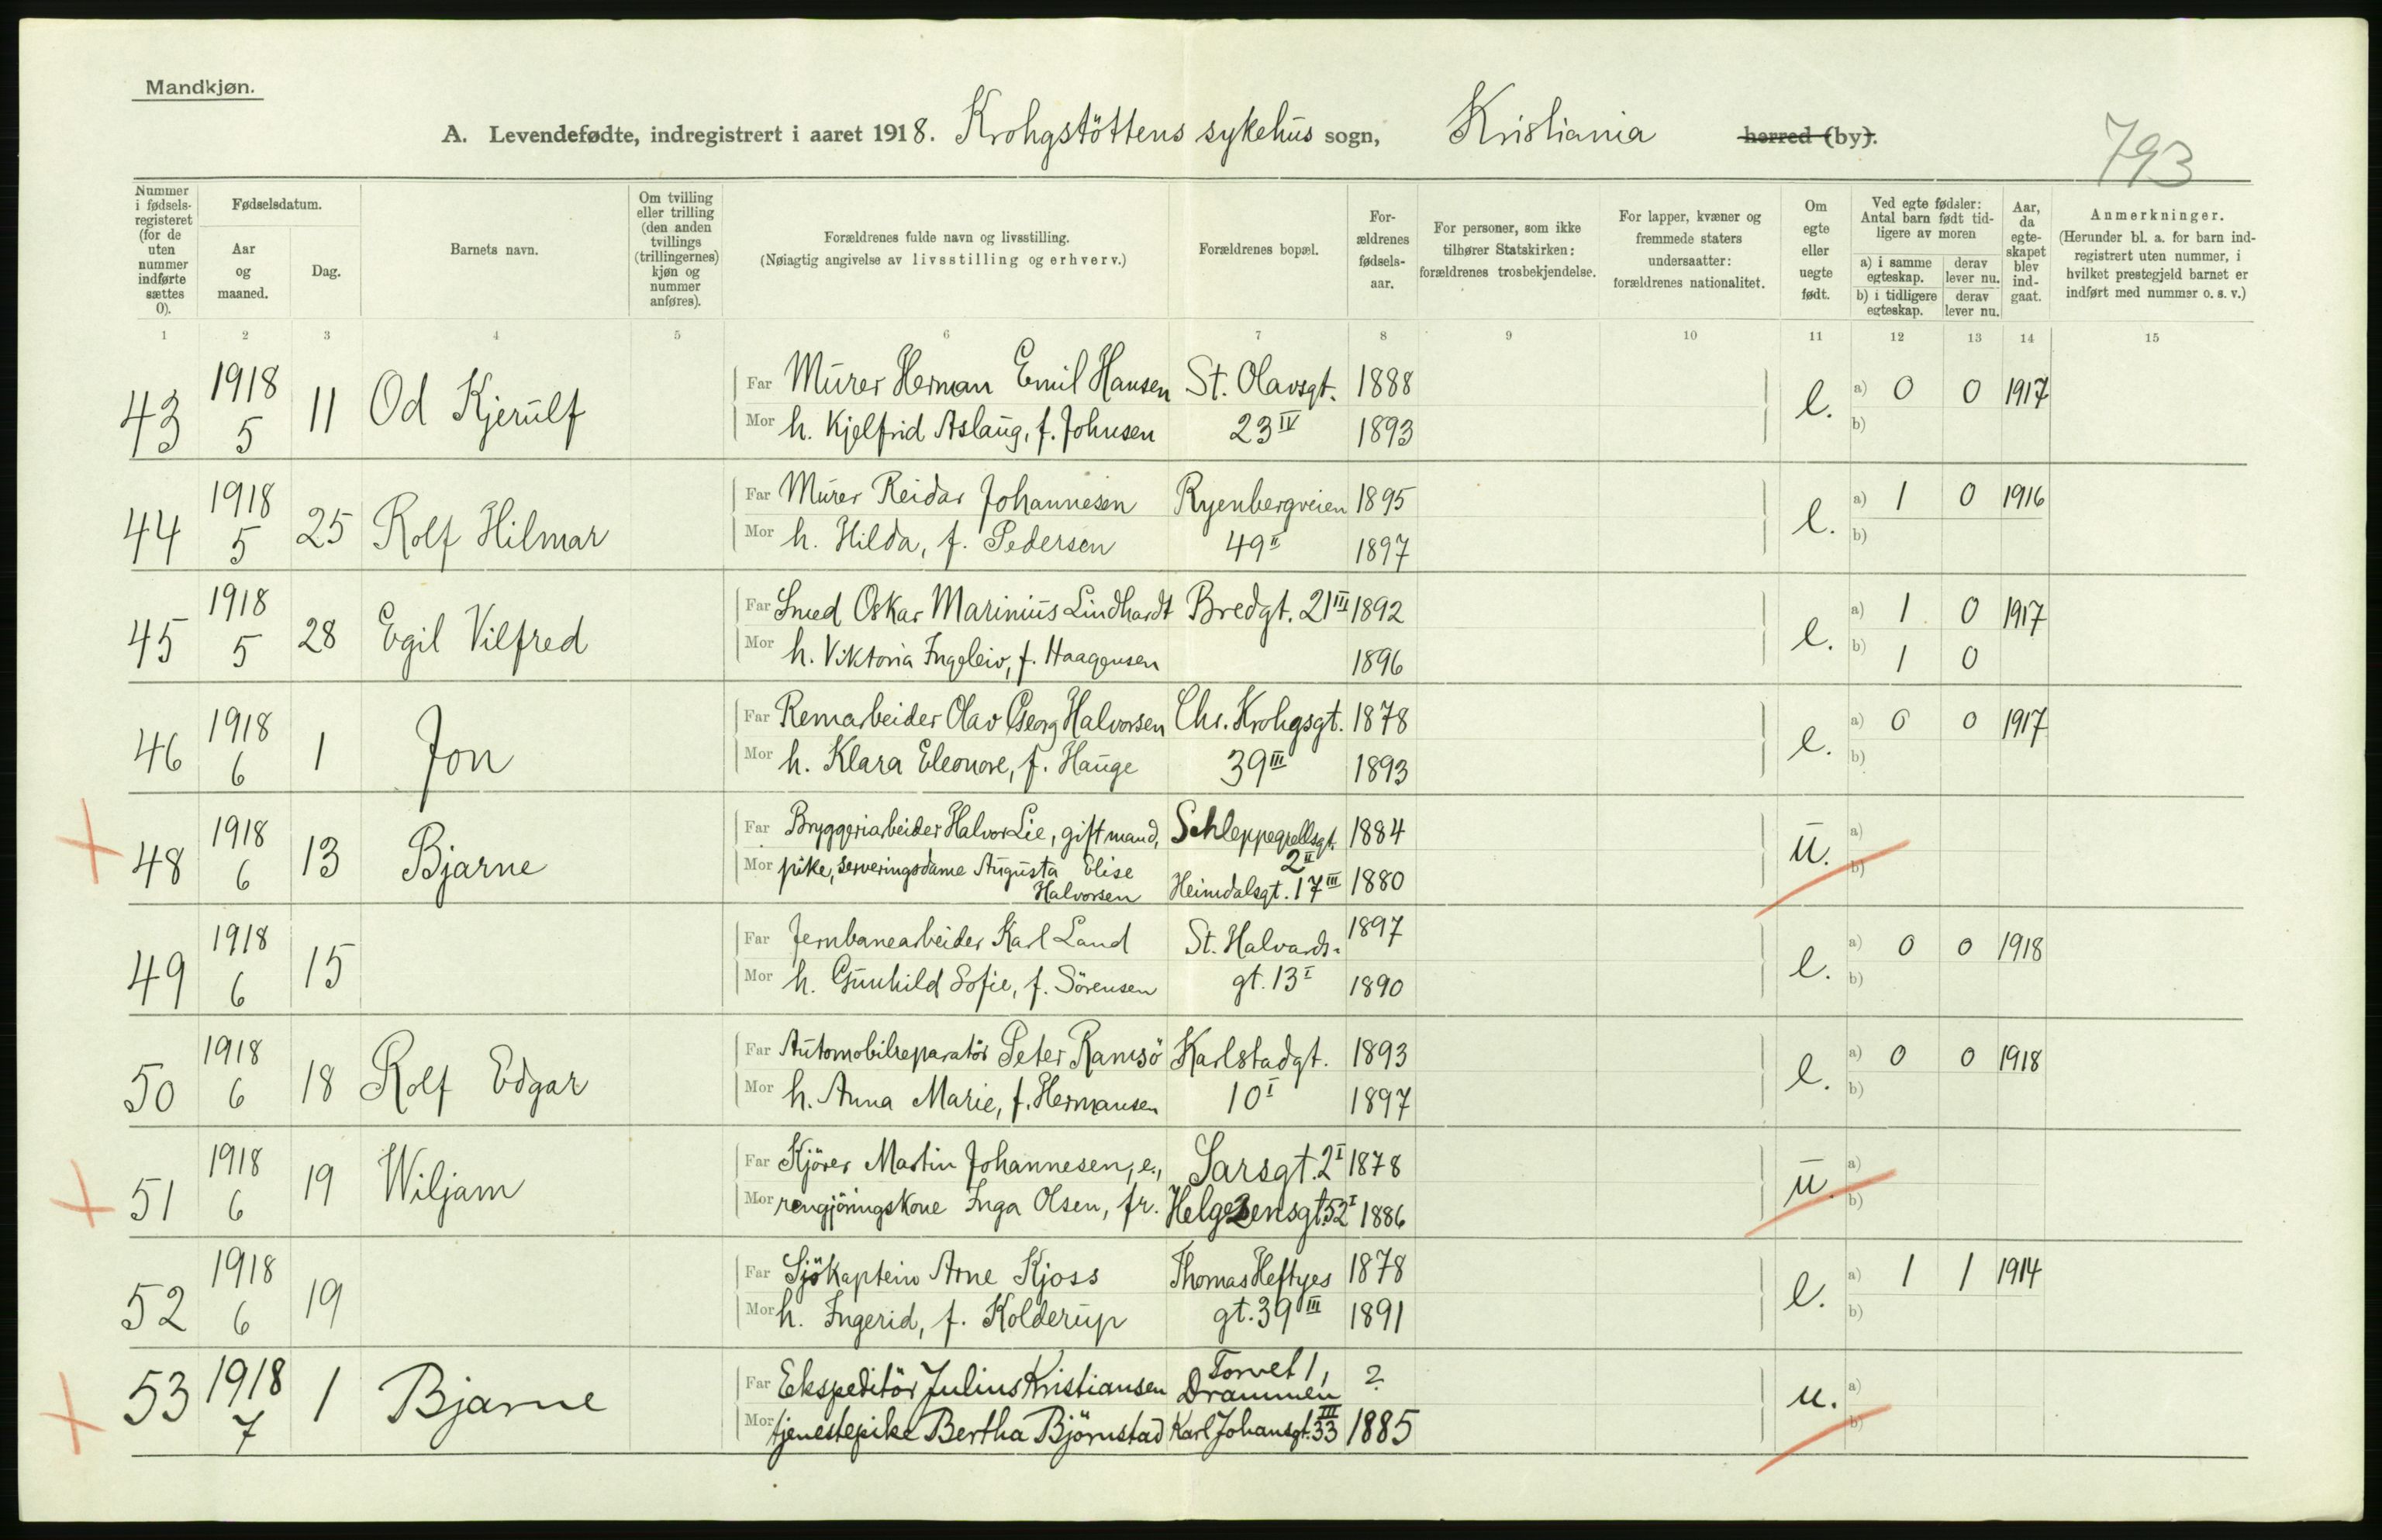 Mandkjøn.
A. Levendefødte, indregistrert i aaret 1918. Krohgstöttens sykehus sogn, Kristiania herred (by).
793
Nummer i fødselsregisteret (for de uten nummer indførte sættes 0).
Fødselsdatum.
Aar og maaned.
Dag.
Barnets navn.
Om tvilling eller trilling (den anden tvillings (trillingernes) kjøn og nummer anføres).
Forældrenes fulde navn og livsstilling.
(Nøiagtig angivelse av livsstilling og erhverv.)
Forældrenes bopæl.
Forældrenes fødselsaar.
For personer, som ikke tilhører Statskirken: forældrenes trosbekjendelse.
For lapper, kvæner og fremmede staters undersaatter: forældrenes nationalitet.
Om egte eller uegte født.
Ved egte fødsler: Antal barn født tidligere av moren
a) i samme egteskap. derav lever nu.
b) i tidligere egteskap. derav lever nu.
Aar, da egteskapet blev indgaat.
Anmerkninger.
(Herunder bl. a. for barn indregistrert uten nummer, i hvilket prestegjeld barnet er indført med nummer o. s. v.)
1 2 3 4 5 6 7 8 9 10 11 12 13 14 15
43 1918 5 11 Od Kjerulf
Far Murer Herman Emil Hansen St. Olavsgt. 1888 e. a) 0 0 1917
Mor h. Kjelfrid Aslaug, f. Johnsen 23 IV 1893 b)
44 1918 5 25 Rolf Hilmar
Far Murer Reidar Johannesen Ryenbergveien 1895 e. a) 1 0 1916
Mor h. Hilda, f. Pedersen 49 II 1897 b)
45 1918 5 28 Egil Vilfred
Far Smed Oskar Marinius Lindhardt Bredgt. 21 III 1892 e. a) 1 0 1917
Mor h. Viktoria Ingeleiv, f. Haagensen 1896 b) 1 0
46 1918 6 1 Jon
Far Remarbeider Olav Georg Halvorsen Chr. Krohgsgt. 1878 e. a) 0 0 1917
Mor h. Klara Eleonore, f. Hauge 39 III 1893 b)
48 1918 6 13 Bjarne
Far Bryggeriarbeider Halvor Lie, gift mand, Schleppegrellsgt. 2 II 1884 u. a)
Mor pike, serveringsdame Augusta Elise Halvorsen Heimdalsgt. 17 III 1880 b)
49 1918 6 15
Far Jernbanearbeider Karl Land St. Halvards- 1897 e. a) 0 0 1918
Mor h. Gunhild Sofie, f. Sörensen gt. 13 I 1890 b)
50 1918 6 18 Rolf Edgar
Far Automobilreparatör Peter Ramsö Karlstadgt. 1893 e. a) 0 0 1918
Mor h. Anna Marie, f. Hermansen 10 I 1897 b)
51 1918 6 19 Wiljam
Far Kjörer Martin Johannesen, e., Sarsgt. 2 I 1878 u. a)
Mor rengjöringskone Inga Olsen, fr. Helgesensgt. 52 I 1886 b)
52 1918 6 19
Far Sjökaptein Arne Kjoss Thomas Heftyes 1878 e. a) 1 1 1914
Mor h. Ingerid, f. Kolderup gt. 39 III 1891 b)
53 1918 7 1 Bjarne
Far Ekspeditör Julius Kristiansen Torvet 1, Drammen ? u. a)
Mor tjenestepike Bertha Björnstad Karl Johansgt. 33 III 1885 b)